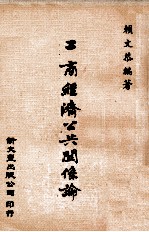 賴文恭編著
工商經濟公共關係論
新文豐出版公司 印行